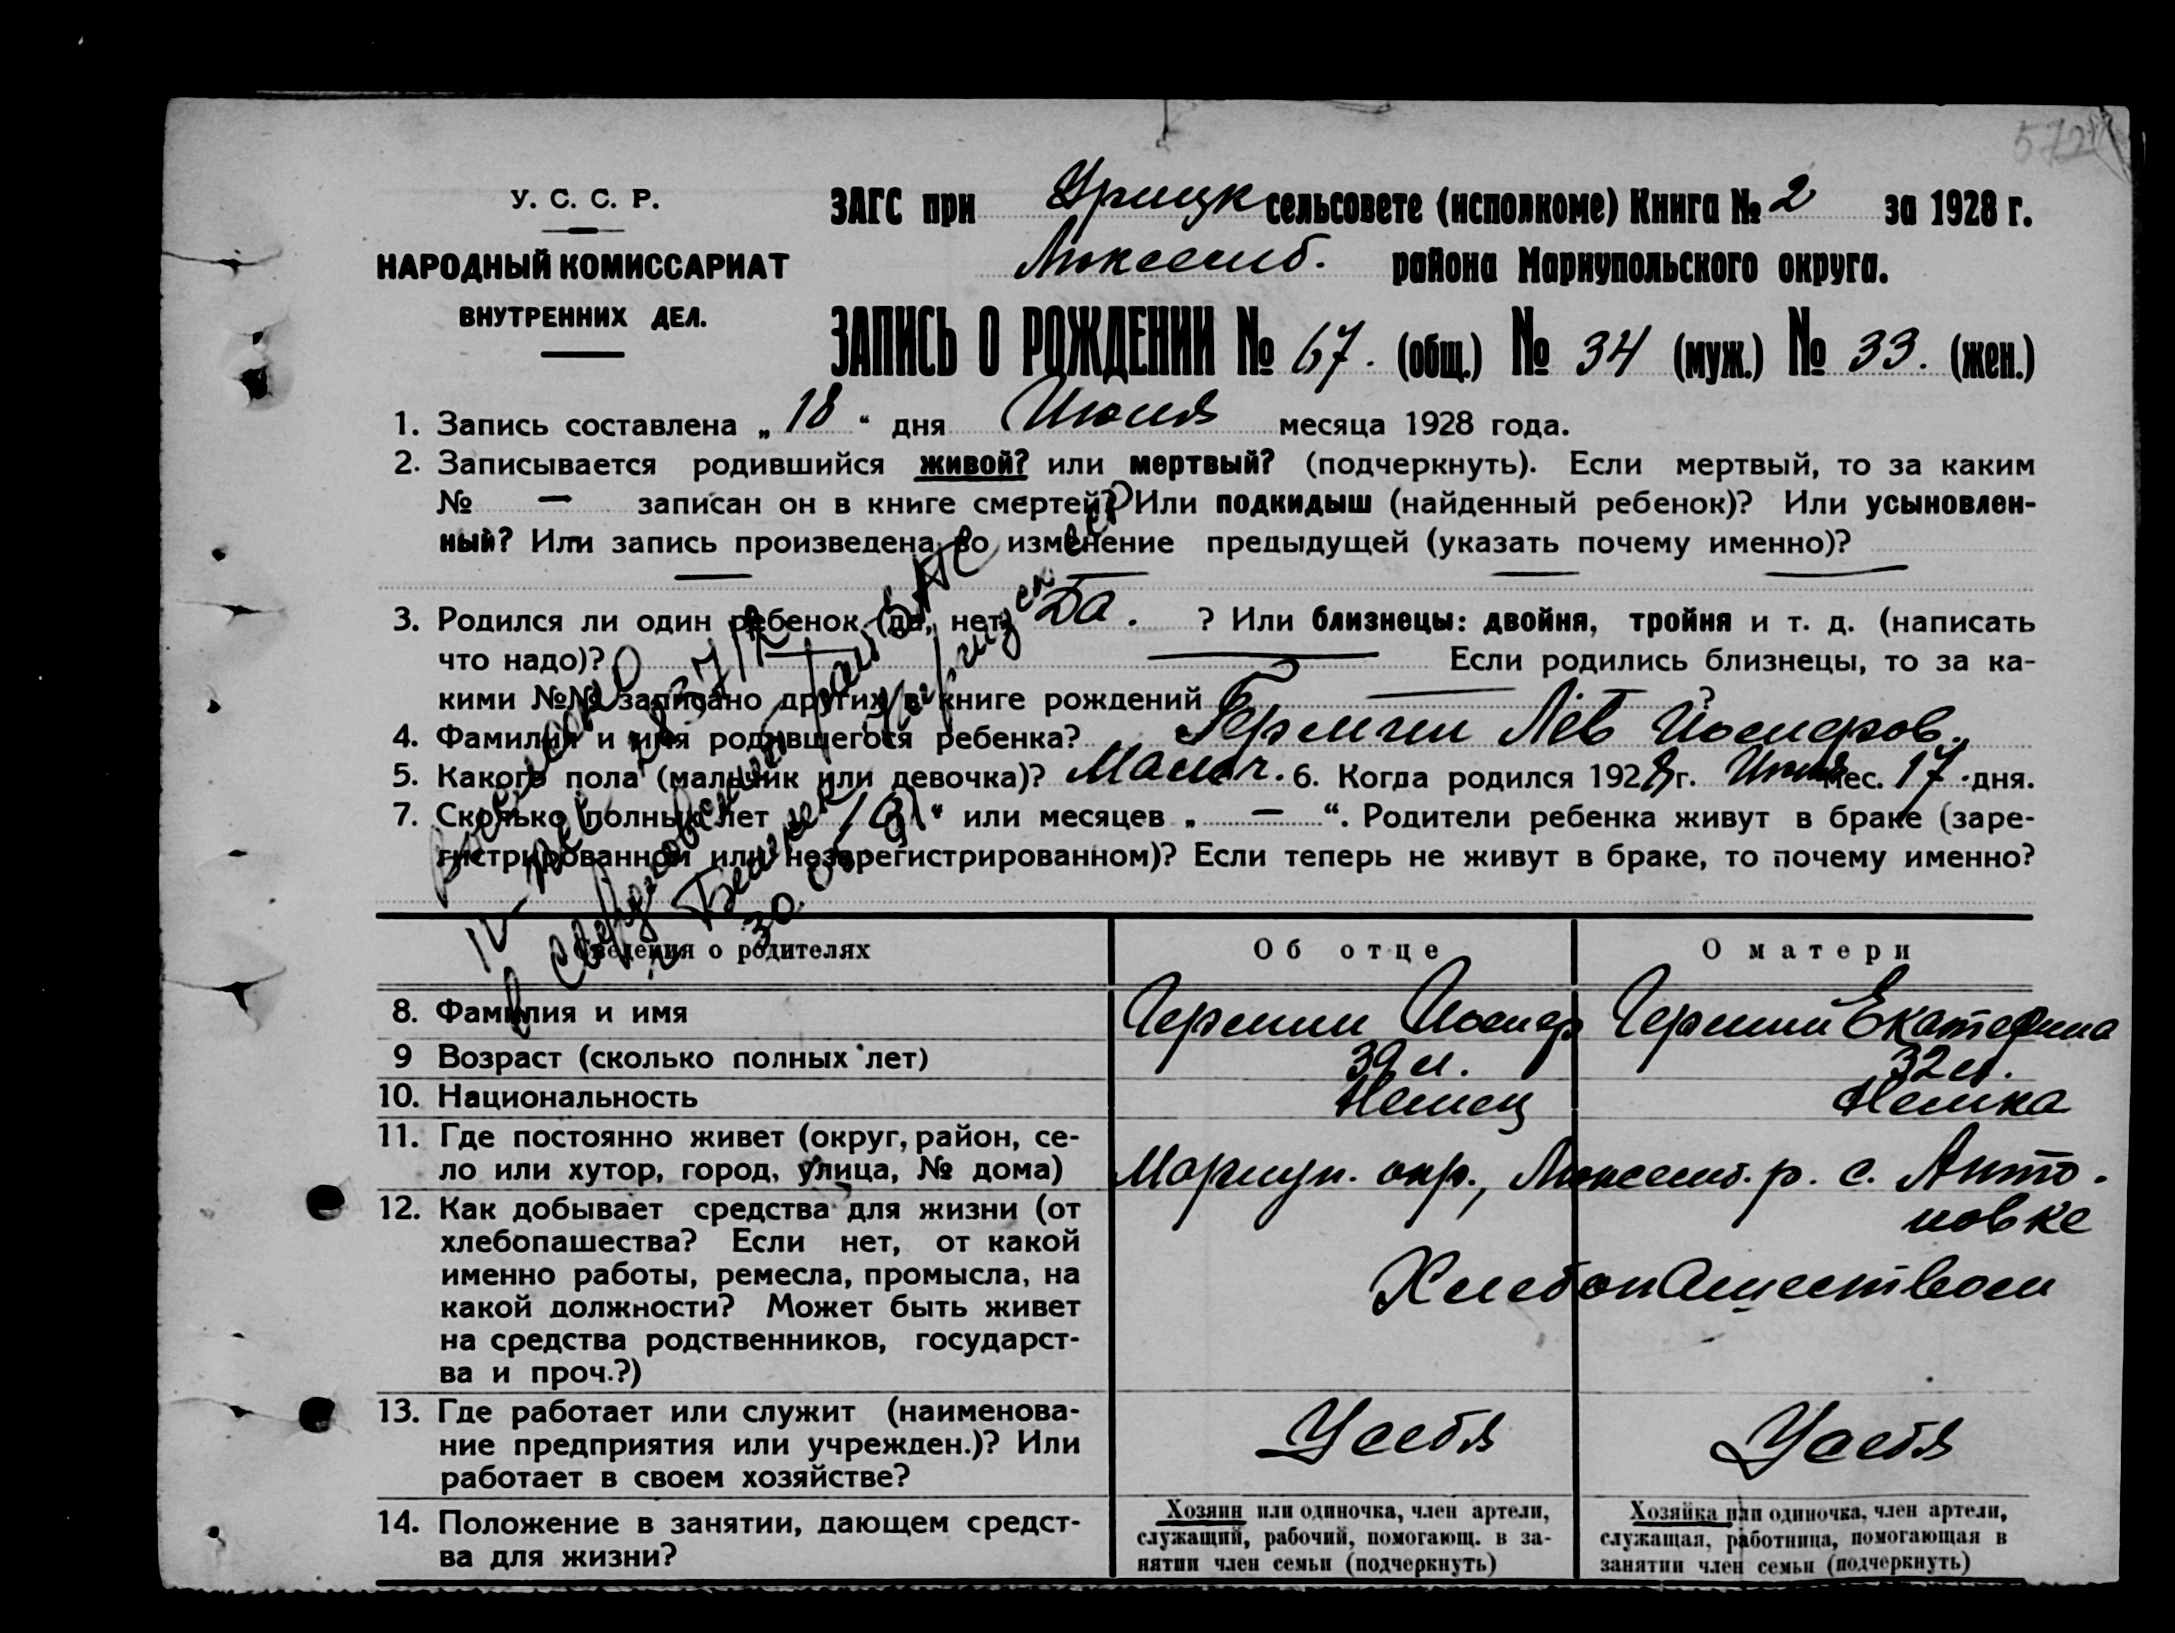 572
У. С. С. Р.
НАРОДНЫЙ КОМИССАРИАТ
ВНУТРЕННИХ ДЕЛ.
ЗАГС при Урицк сельсовете (исполкоме) Книга № 2 за 1928 г.
Люксемб. района Мариупольского округа.
ЗАПИСЬ О РОЖДЕНИИ № 67. (общ.) № 34 (муж.) № 33. (жен.)
1. Запись составлена „ 18 “ дня Июля месяца 1928 года.
2. Записывается родившийся живой? или мертвый? (подчеркнуть). Если мертвый, то за каким
№ — записан он в книге смертей? Или подкидыш (найденный ребенок)? Или усыновлен-
ный? Или запись произведена во изменение предыдущей (указать почему именно)?
3. Родился ли один ребенок (да, нет) Да. ? Или близнецы: двойня, тройня и т. д. (написать
что надо)? — Если родились близнецы, то за ка-
кими №№ записано других в книге рождений — ?
4. Фамилия и имя родившегося ребенка? Гермин Лев Иосифов.
5. Какого пола (мальчик или девочка)? Мальч. 6. Когда родился 1928 г. Июля мес. 17 дня.
7. Сколько полных лет “ или месяцев „ — “. Родители ребенка живут в браке (заре-
гистрированном или незарегистрированном)? Если теперь не живут в браке, то почему именно?
Сведения о родителях
Об отце
О матери
8. Фамилия и имя
Гермин Иосиф
Гермин Екатерина
9 Возраст (сколько полных лет)
39 л.
32 л.
10. Национальность
Немец
Немка
11. Где постоянно живет (округ, район, се-
ло или хутор, город, улица, № дома)
Мариуп. окр., Люксемб. р. с. Анто-
новке
12. Как добывает средства для жизни (от
хлебопашества? Если нет, от какой
именно работы, ремесла, промысла, на
какой должности? Может быть живет
на средства родственников, государст-
ва и проч.?)
Хлебопашеством
13. Где работает или служит (наименова-
ние предприятия или учрежден.)? Или
работает в своем хозяйстве?
У себя
У себя
14. Положение в занятии, дающем средст-
ва для жизни?
Хозяин или одиночка, член артели,
служащий, рабочий, помогающ. в за-
нятии член семьи (подчеркнуть)
Хозяйка или одиночка, член артели,
служащая, работница, помогающая в
занятии член семьи (подчеркнуть)